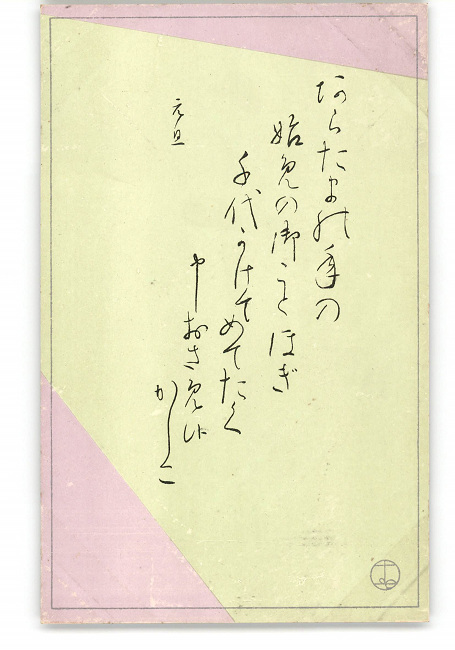 あらたまの年の
始めの御ことほぎ
千代かけてめでたく
申おさめ候
かしこ
元旦